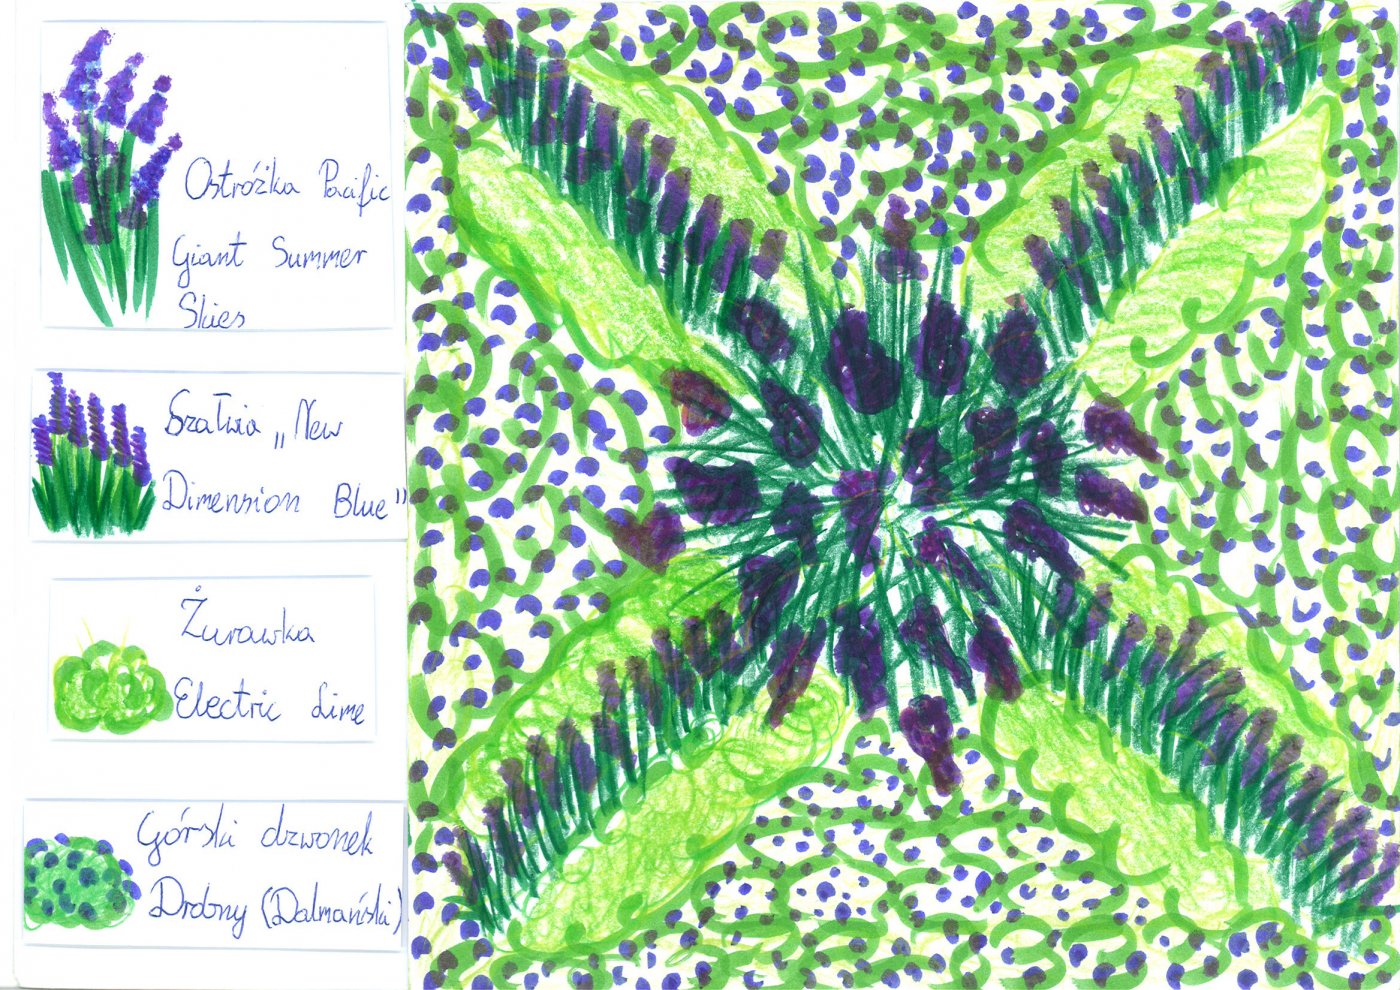 Ostróżka Pacific
Giant Summer
Skies
Szałwia „New
Dimension Blue”
Żurawka
Electric Lime
Górski dzwonek
Drobny (Dalmański)